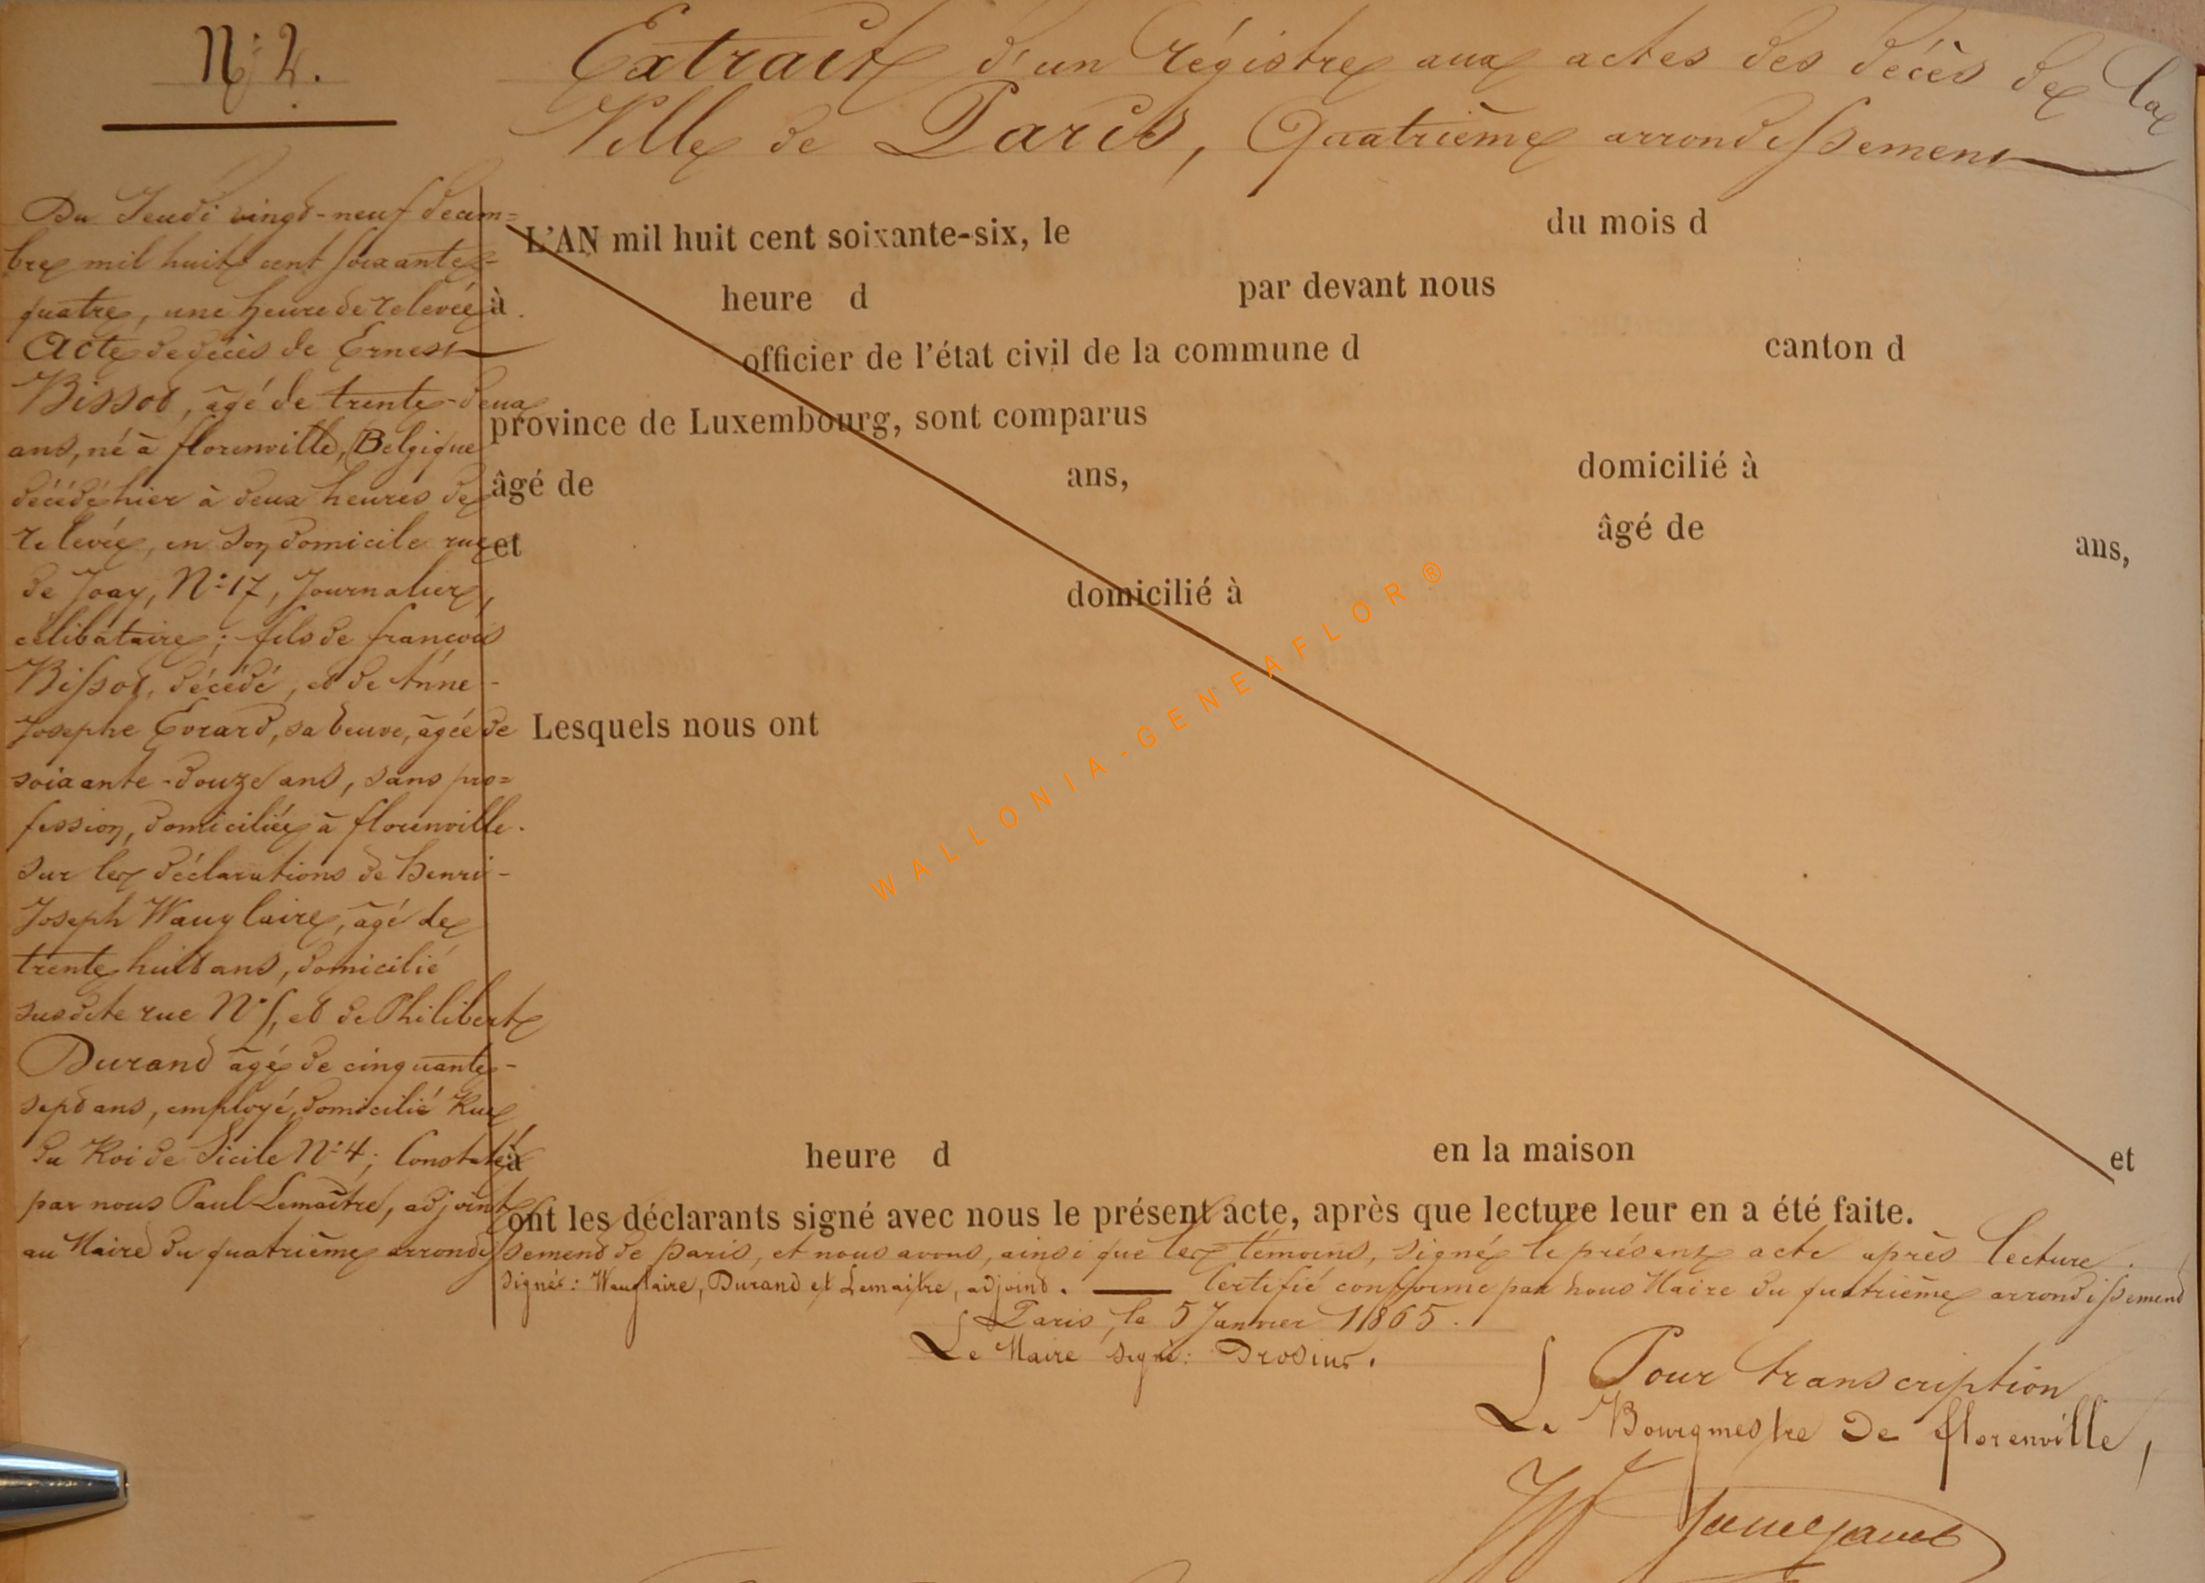 N° 2.
Extrait d'un régistre aux actes des décès de la
Ville de Paris, Quatrième arrondissement
Du Jeudi vingt-neuf décem=
bre mil huit cent soixante-
quatre, une heure de relevée
Acte de décès de Ernest
Bissot, âgé de trente-deux
ans, né à florenville, Belgique
décédé hier à deux heures de
relevée, en son domicile rue
de Jouy, N° 17, Journalier,
célibataire; fils de françois
Bissot, décédé, et de Anne-
Josephe Evrard, sa veuve, agée de
soixante-douze ans, sans pro=
fession, domiciliée à florenville.
sur les déclarations de henri-
Joseph Wauglaire, âgé de
trente huit ans, domicilié
susdite rue N° et de Philibert
Durand âgé de cinquante-
sept ans, employé, domicilié Rue
du Roi de Sicile N° 4; Constaté
par nous Paul Lemaître, adjoint
au Maire du quatrième arrondissement de paris, et nous avons, ainsi que les témoins, signé le présent acte après lecture.
signés: Wauglaire, Durand et Lemaitre, adjoint. — Certifié conforme par nous Maire du quatrième arrondissement
Paris, le 5 Janvier 1865.
Le Maire signé: Drosius.
L'AN mil huit cent soixante-six, le du mois d
à heure d par devant nous
officier de l'état civil de la commune d canton d
province de Luxembourg, sont comparus
âgé de ans, domicilié à
et âgé de ans,
domicilié à
Lesquels nous ont
à heure d en la maison et
ont les déclarants signé avec nous le présent acte, après que lecture leur en a été faite.
Pour transcription
Le Bourgmestre de florenville,
WALLONIA-GENEAFLOR ®